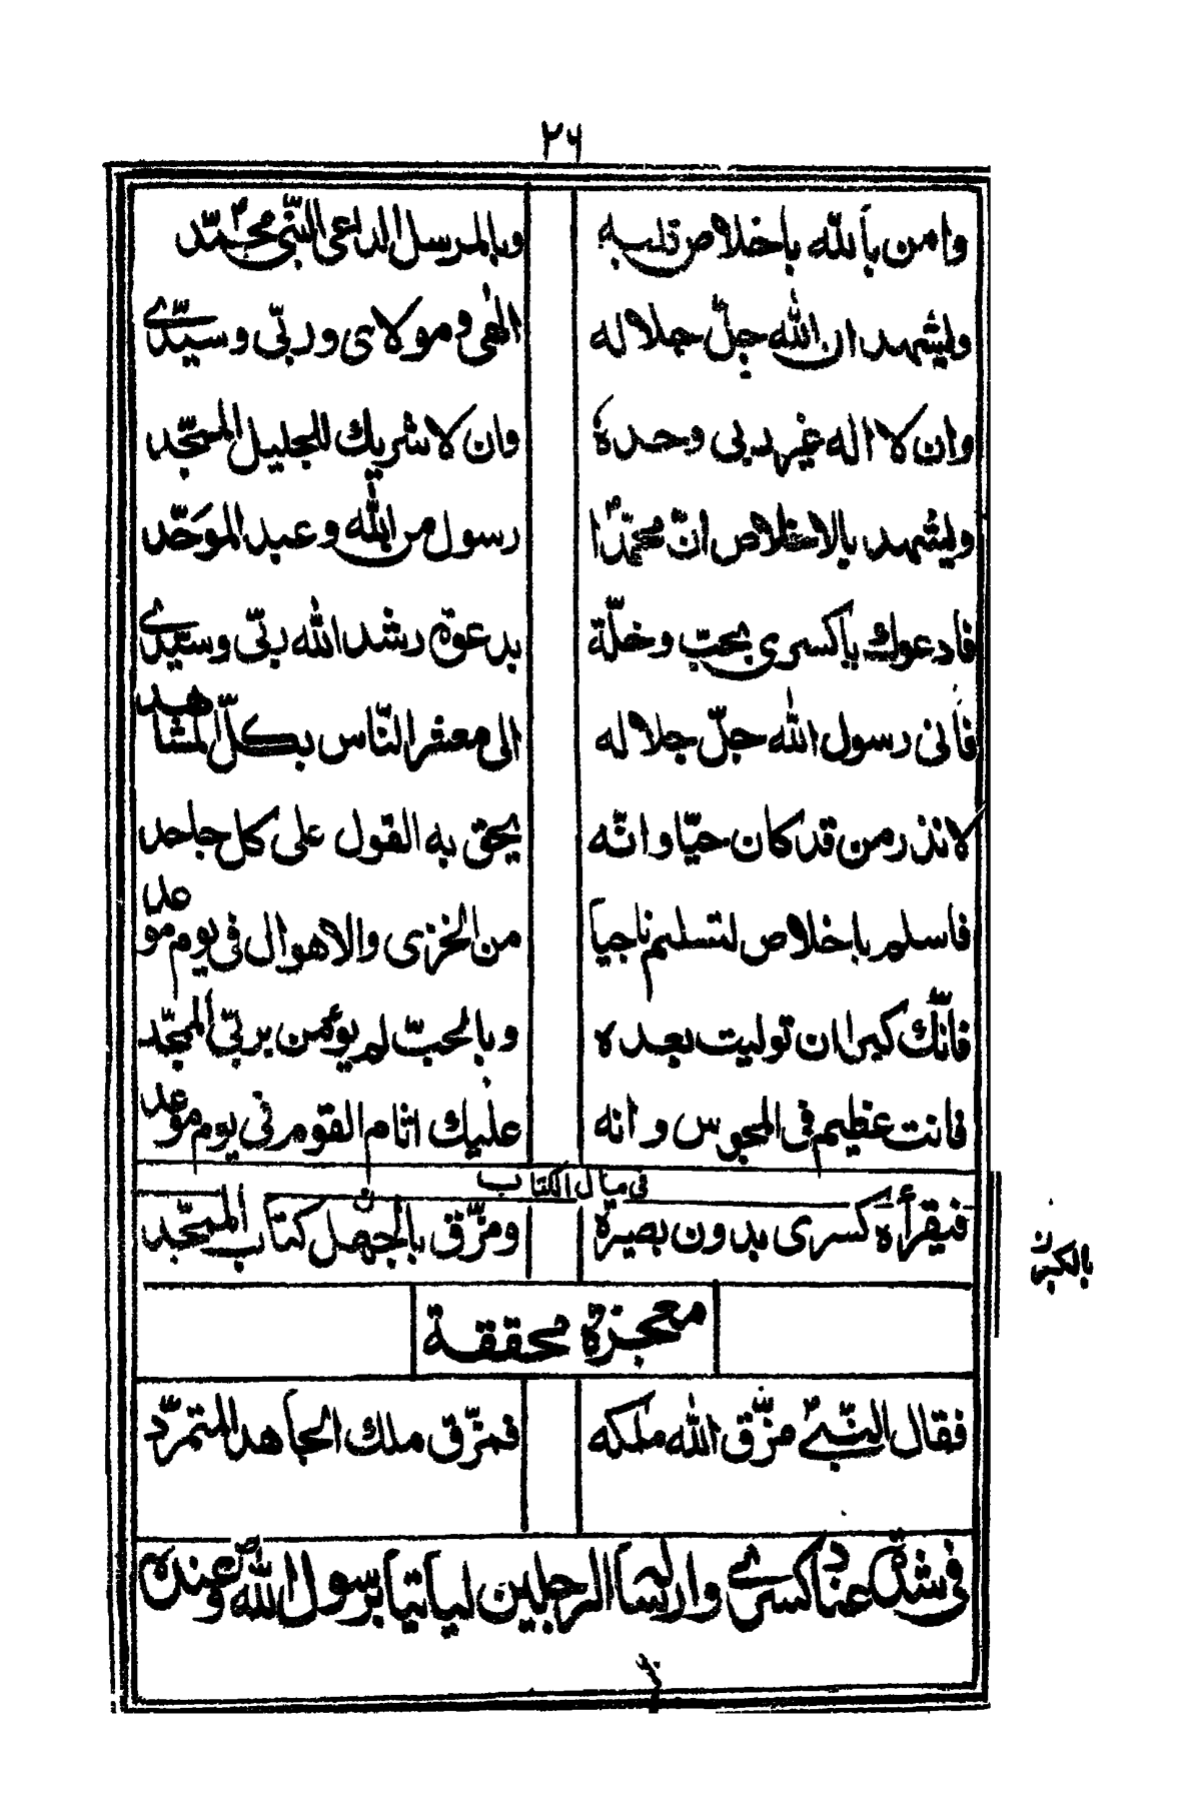 ٢٦
وامن بالله باخلاص قلبه وبالمرسل الداعی النّبی محمّد
ولیشهد ان الله جلّ جلاله الٰهی ومولای وربّی وسیّدی
وان لا اله غیر ربی وحده وان لا شریك للجلیل الممجّد
ولیشهد بالاخلاص انّ محمّدًا رسول من الله وعبد الموَحّد
فادعوك یا کسری بحبّ وخلّة بدعوة رشد الله ربّی وسیّدی
فأنی رسول الله جلّ جلاله الی معشر النّاس بکلّ المشاهد
لانذر من قد کان حیّا وانّه یحق به القول علی کل جاحد
فاسلم باخلاص لتسلم ناجیا من الخزی والاهوال فی یوم موعد
فأنّك کبرا ان تولیت بعده وبالحبّ لم یؤمن بربّی الممجّد
فانت عظیم فی المجوس وانه علیك اثام القوم فی یوم موعد
فی مآل الکتاب
فیقرأه کسری بدون بصیرة ومزّق بالجهل کتاب الممجّد
بالکبر
معجزة محققة
فقال النّبیّ مزّق الله ملکه فمزّق ملك الجاهد المتمرّد
فی شدّة عناد کسری وارساله الرجلین لیاتیا برسول الله وعنده